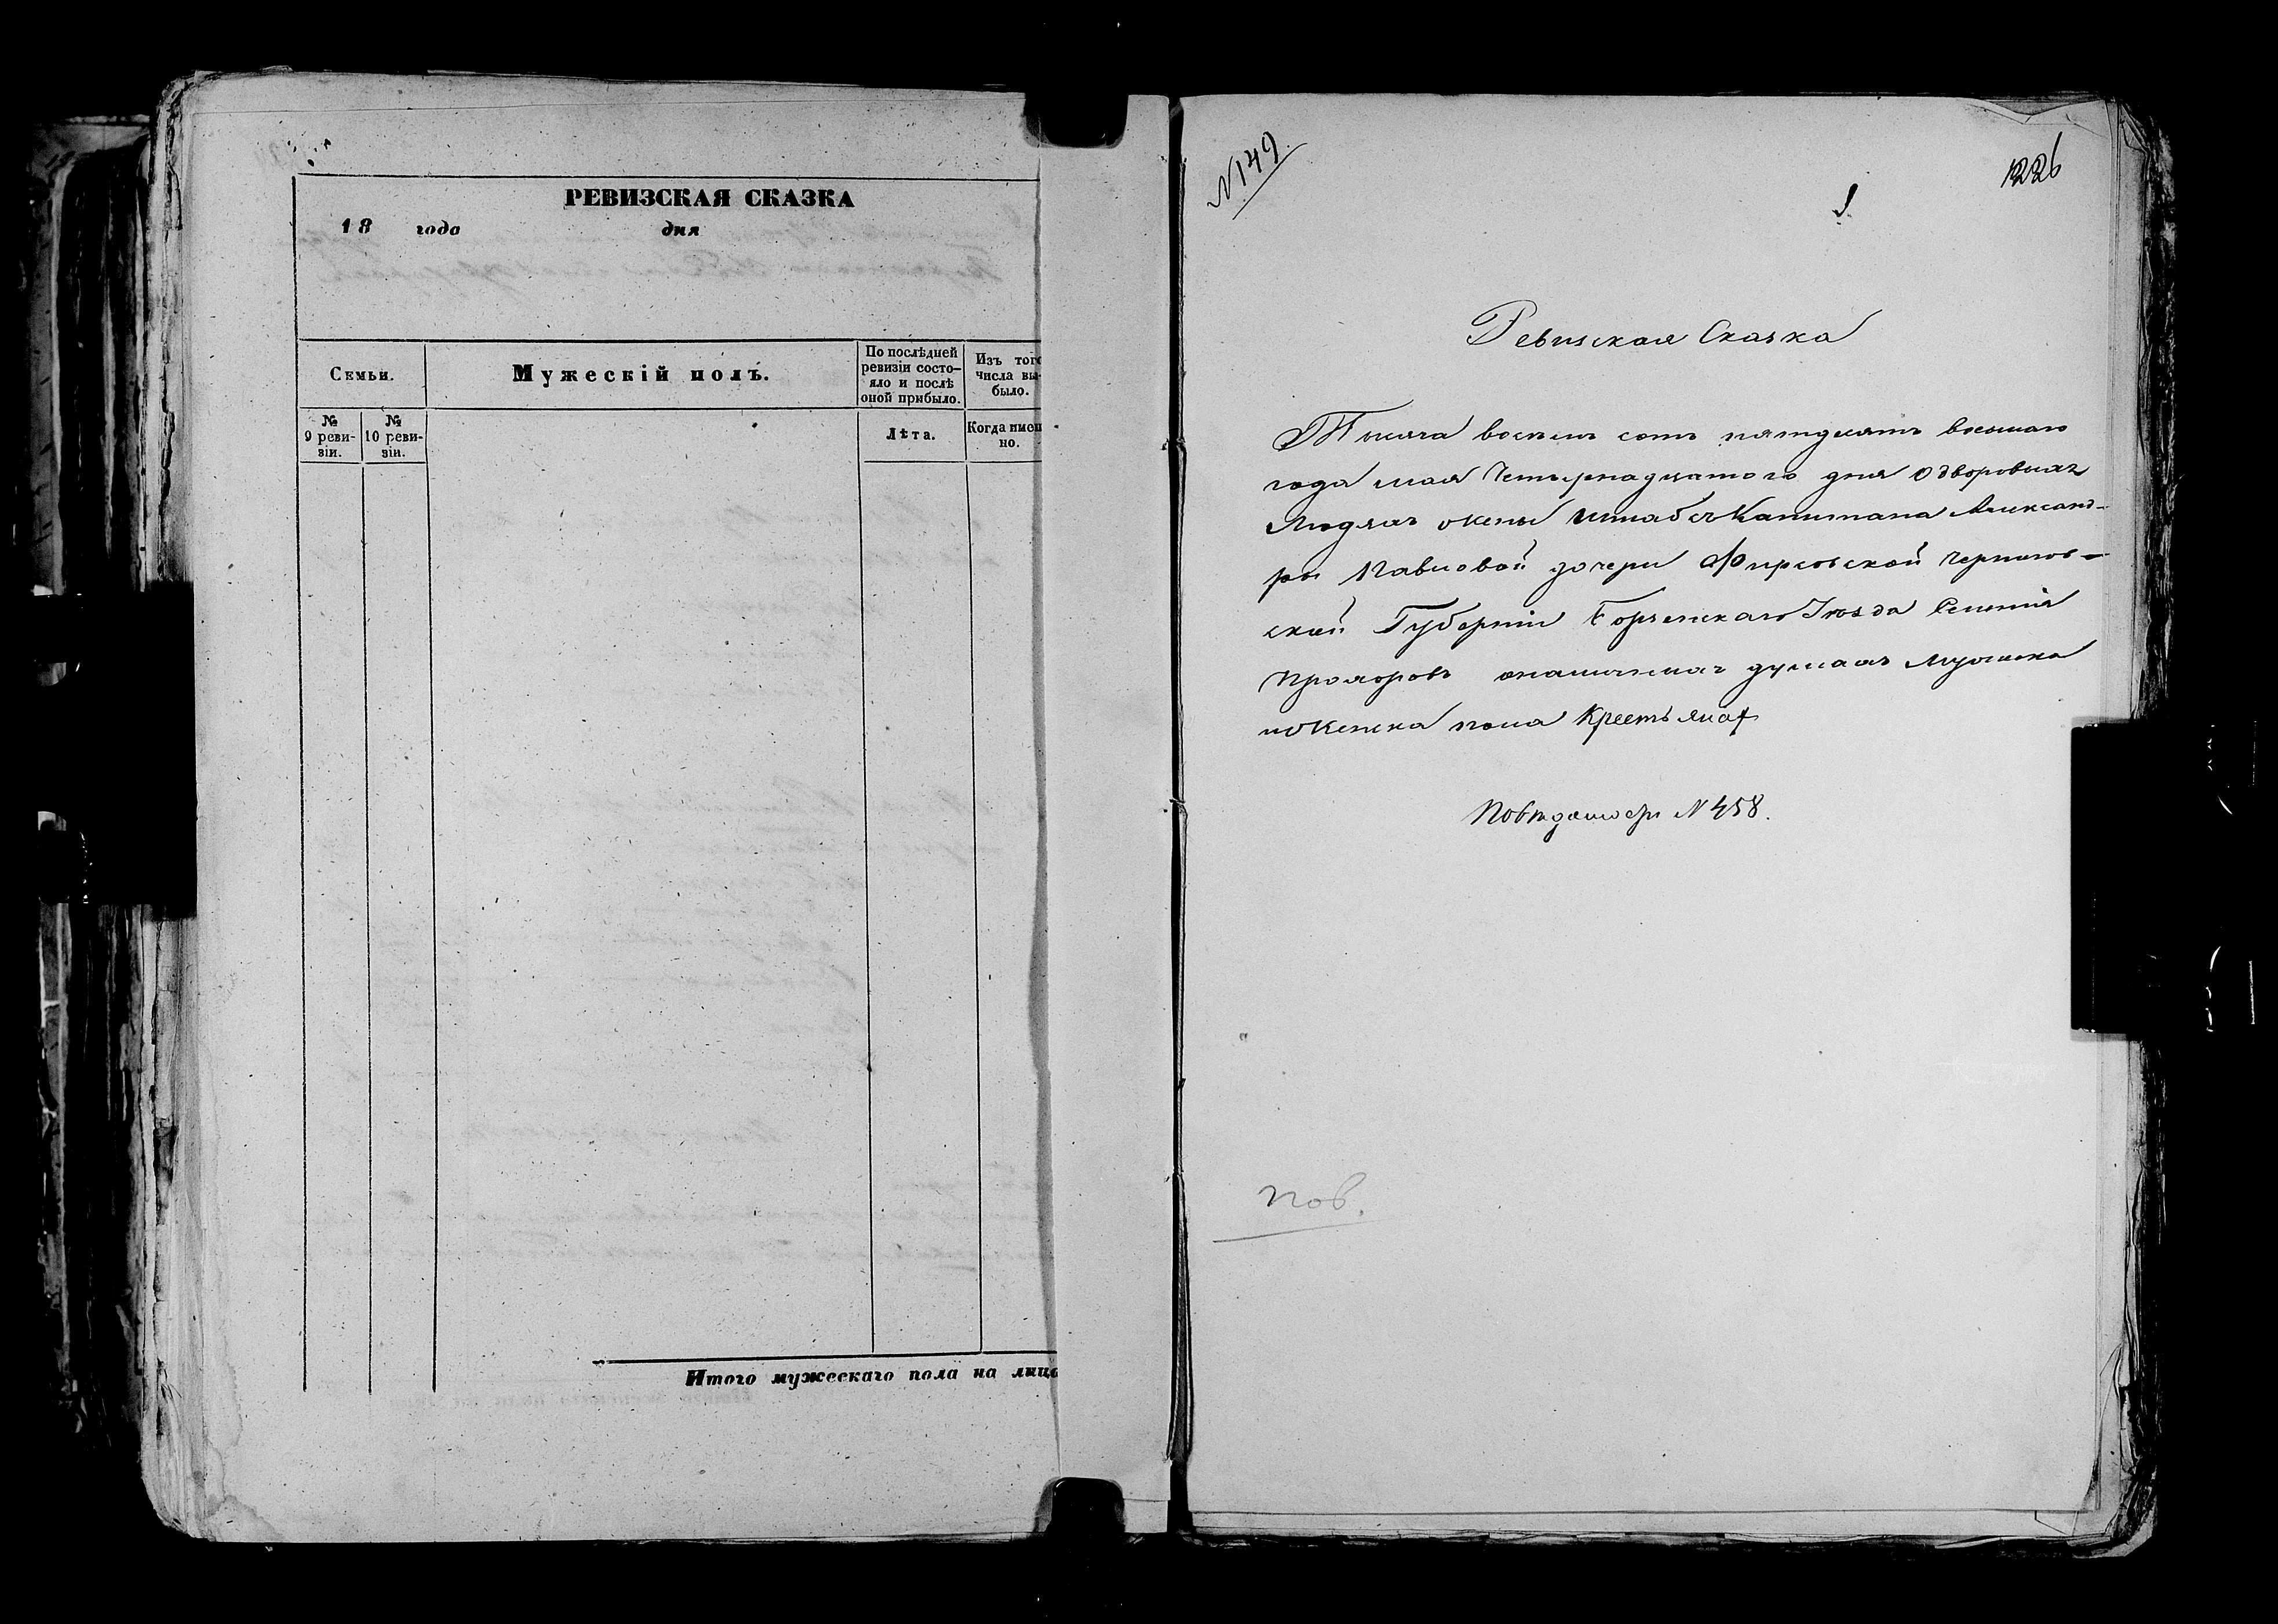 РЕВИЗСКАЯ СКАЗКА
18 года дня
Семьи.
Мужескій полъ.
По послѣдней
ревизіи состо-
яло и послѣ
оной прибыло.
Изъ того
числа вы-
было.
№
9 реви-
зіи.
№
10 реви-
зіи.
Лѣта.
Когда имен
но.
Итого мужескаго пола на лице
N 149
1226
Ревизская Сказка
Тысяча восемь сотъ пятдесятъ восьмаго
года мая Четырнадцатого дня Одворовыхъ
Людяхъ жены Штабсъ Капитана Александ-
ры Павловой дочери Фирсовской Чернигов-
ской Губерніи Борзенскаго Уезда
душахъ Мужеска
иЖенска пола Крестьянах
N 458.
Пов.